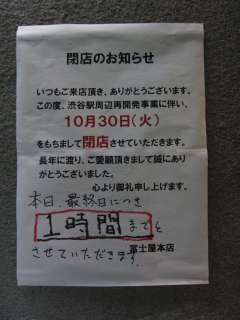 閉店のお知らせ
いつもご来店頂き、ありがとうございます。
この度、渋谷駅周辺再開発事業に伴い、
10月30日(火)
をもちまして閉店させていただきます。
長年に渡り、ご愛顧頂きまして誠にあり
がとうございました。
心より御礼申し上げます。
本日、最終日につき
1時間までと
させていただきます。
富士屋本店